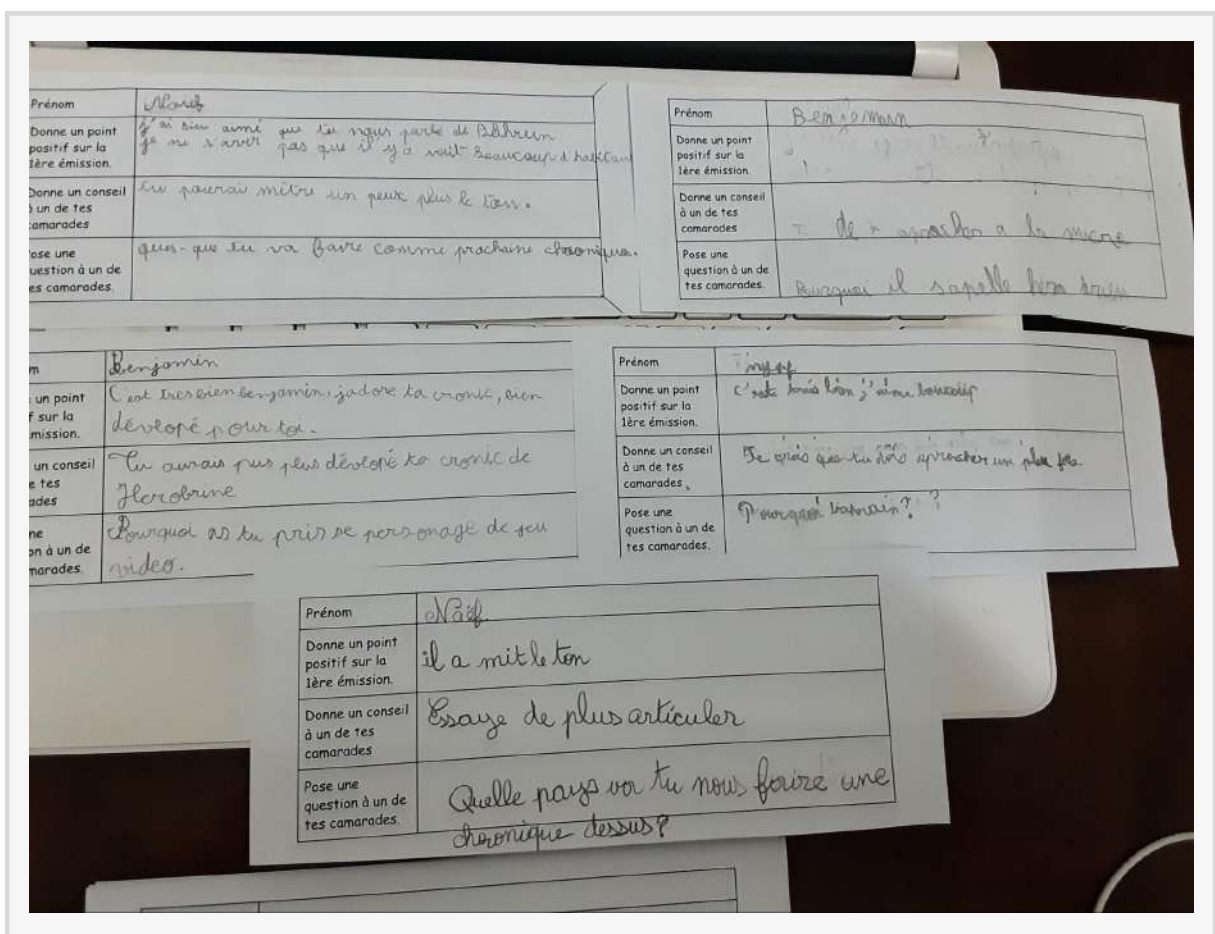 Prénom
Naïf
Donne un point
positif sur la
1ère émission.
j'ai bien aimé que tu nous parle de Bahrein
je ne s'aver pas que il y a vait beaucoup d'habitant
Donne un conseil
à un de tes
camarades
tu pourai mitre un peux plus le ton.
ose une
uestion à un de
es camarades.
ques-que tu va faire comme prochaine chronique.
Prénom
Benjemain
Donne un point
positif sur la
1ère émission
Donne un conseil
à un de tes
camarades
de aprocher a la micre
Pose une
question à un de
tes camarades.
Pourquoi il sapelle
m
Benjamin
un point
f sur la
mission.
C'est tres bien benjamin, jadore ta cronic, bien
dévelopé pour toi.
un conseil
e tes
ades
Tu aurais pus plus dévelopé ta cronic de
Herobrine
ne
on à un de
marades.
Pourquoi as tu pris se personage de jeu
video.
Prénom
Donne un point
positif sur la
1ère émission.
bien j'aime
Donne un conseil
à un de tes
camarades
Je que tu aprocher un plus
Pose une
question à un de
tes camarades.
Pourquoi ?
Prénom
Naïf
Donne un point
positif sur la
1ère émission.
il a mit le ton
Donne un conseil
à un de tes
camarades
Essaye de plus articuler
Pose une
question à un de
tes camarades.
Quelle pays va tu nous faire une
chronique dessus?